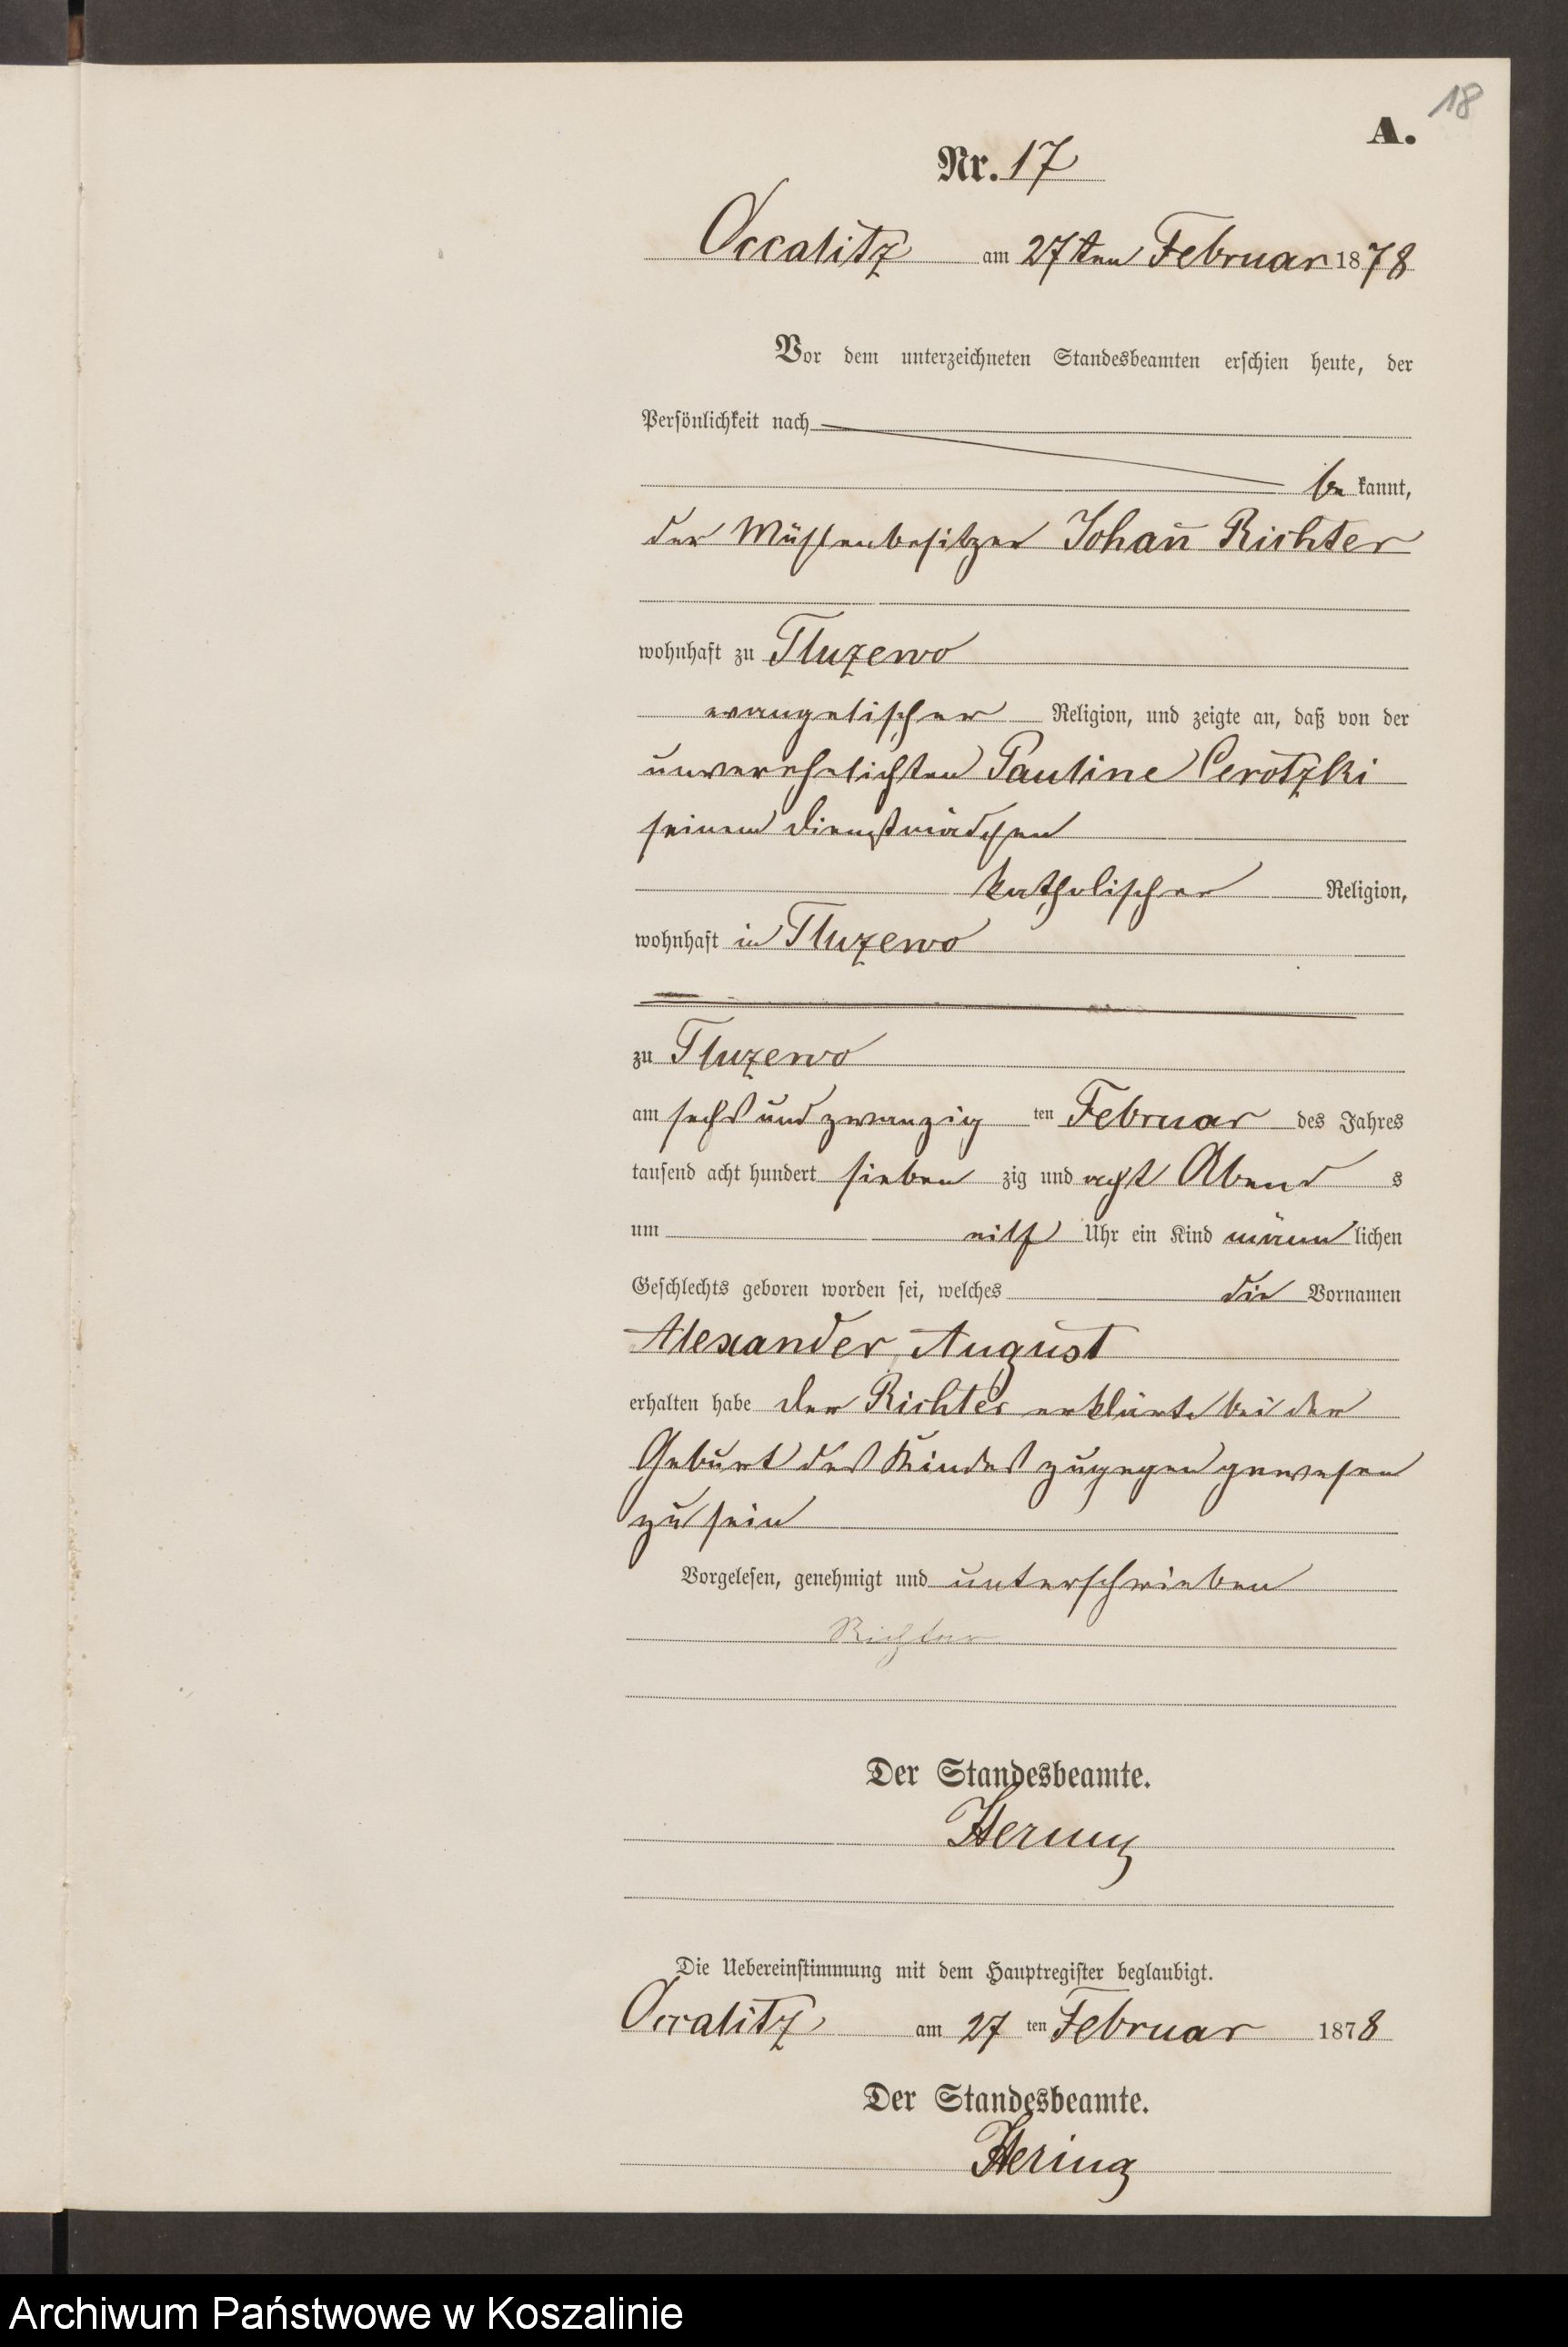 18
A.
Nr. 17
Occalitz am 27ten Februar 1878
Vor dem unterzeichneten Standesbeamten erschien heute, der
Persönlichkeit nach
be kannt,
der Mühlenbesitzer Johan̄ Richter
wohnhaft zu Tluzewo
evangelischer Religion, und zeigte an, daß von der
unverehelichten Pauline Cerotzki
seinem Dienstmädchen
katholischer Religion,
wohnhaft in Tluzewo
zu Tluzewo
am sechs und zwanzig ten Februar des Jahres
tausend acht hundert sieben zig und acht Abend s
um eilf Uhr ein Kind männ lichen
Geschlechts geboren worden sei, welches die Vornamen
Alexander August
erhalten habe Der Richter erklärte bei der
Geburt des Kindes zugegen gewesen
zu sein
Vorgelesen, genehmigt und unterschrieben
Richter
Der Standesbeamte.
Hering
Die Uebereinstimmung mit dem Hauptregister beglaubigt.
Occalitz am 27 ten Februar 1878
Der Standesbeamte.
Hering
Archiwum Państwowe w Koszalinie